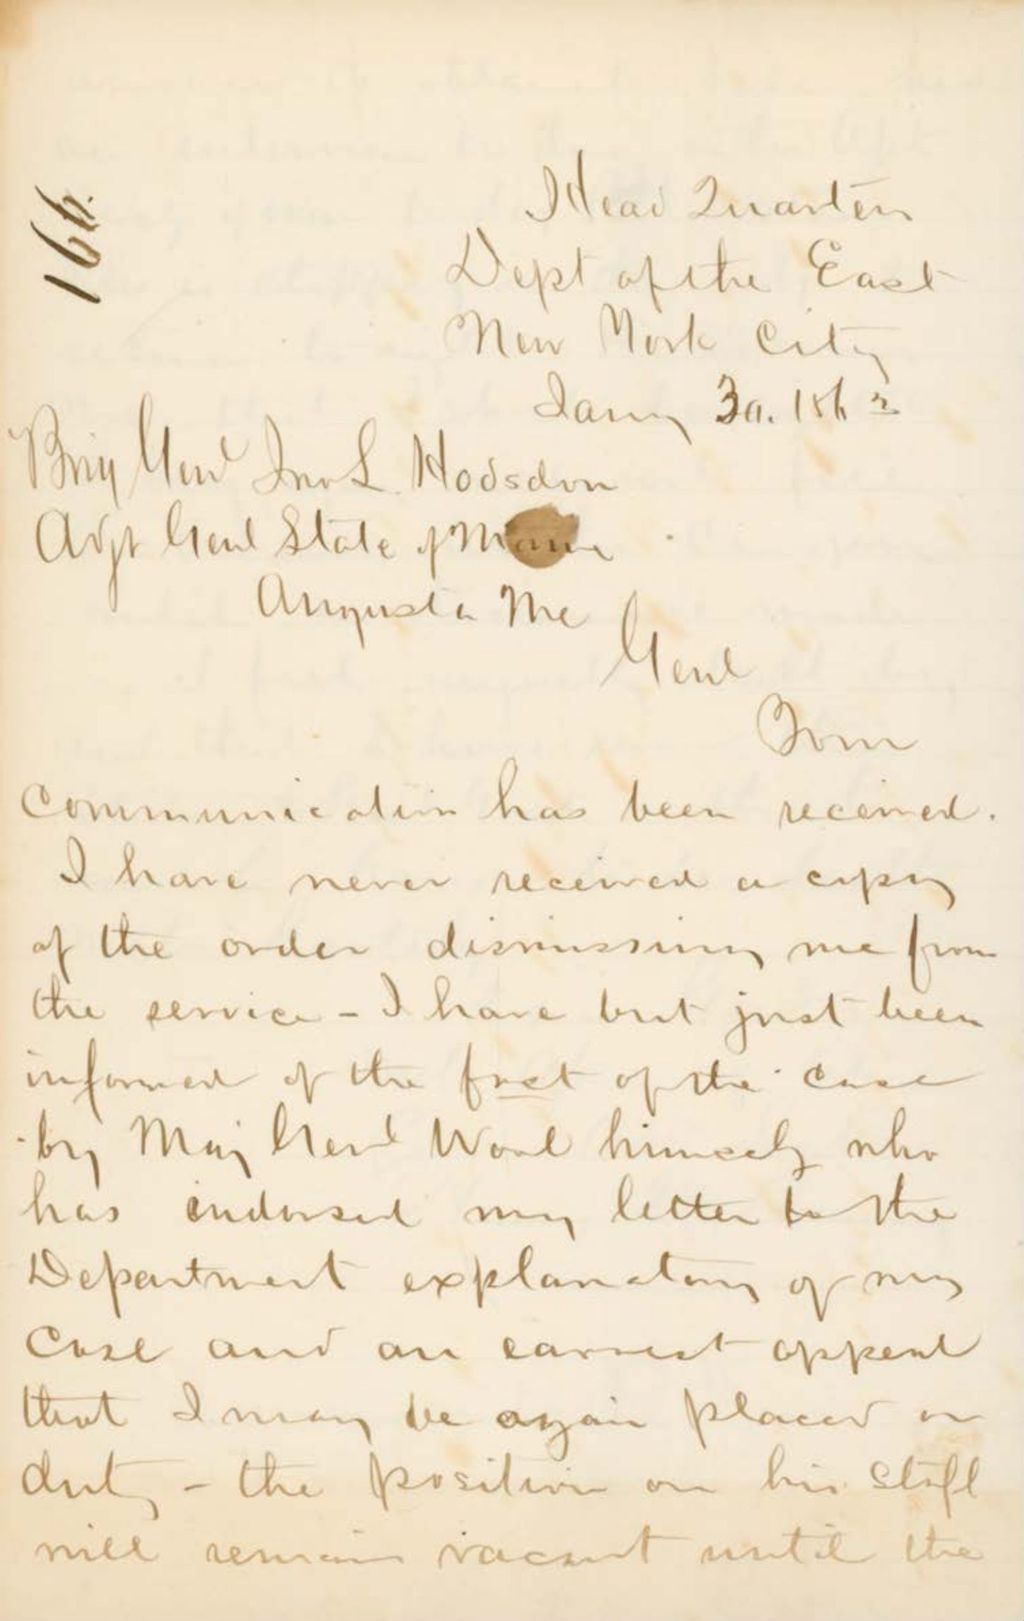 166.
Head Quarters
Dept of the East
New York City
Jany 30. 1863
Brig Genl Jno L. Hodsdon
Adjt Genl State of Maine
Augusta Me
Genl
Your
communication has been received.
I have never received a copy
of the order dismissing me from
the service - I have but just been
informed of the fact of the case
by Maj Genl Wool himself who
has endorsed my letter to the
Department explanatory of my
case and an earnest appeal
that I may be again placed on
duty - the position on his staff
will remain vacant until the